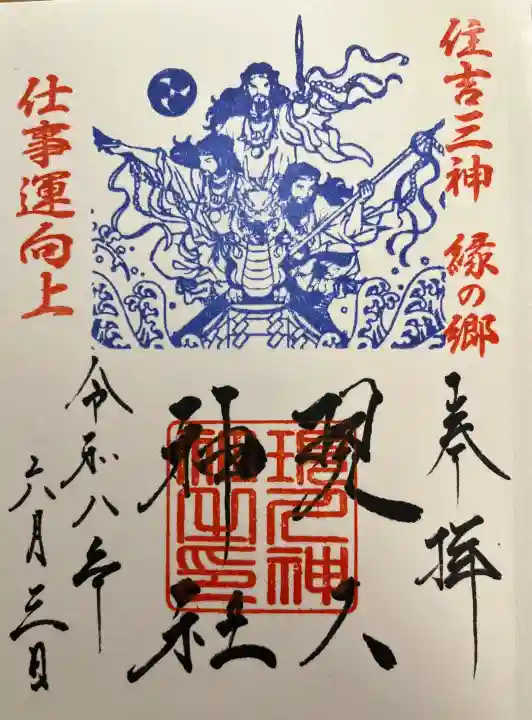 住吉三神 縁の郷
仕事運向上
奉拝
現人
神社
現人神
社之印
令和八年
六月三日